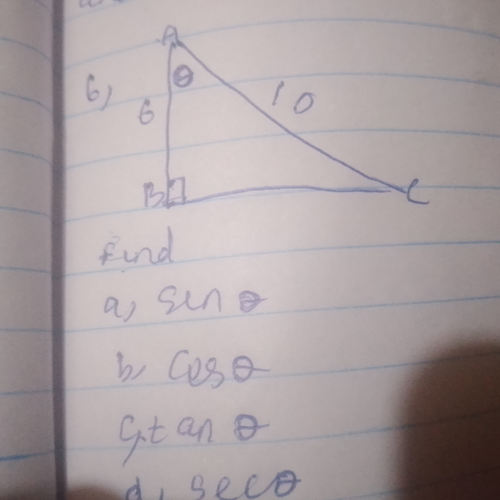 A
θ
6,
6
10
B
C
Find
a, sin θ
b, cos θ
c, tan θ
d, sec θ